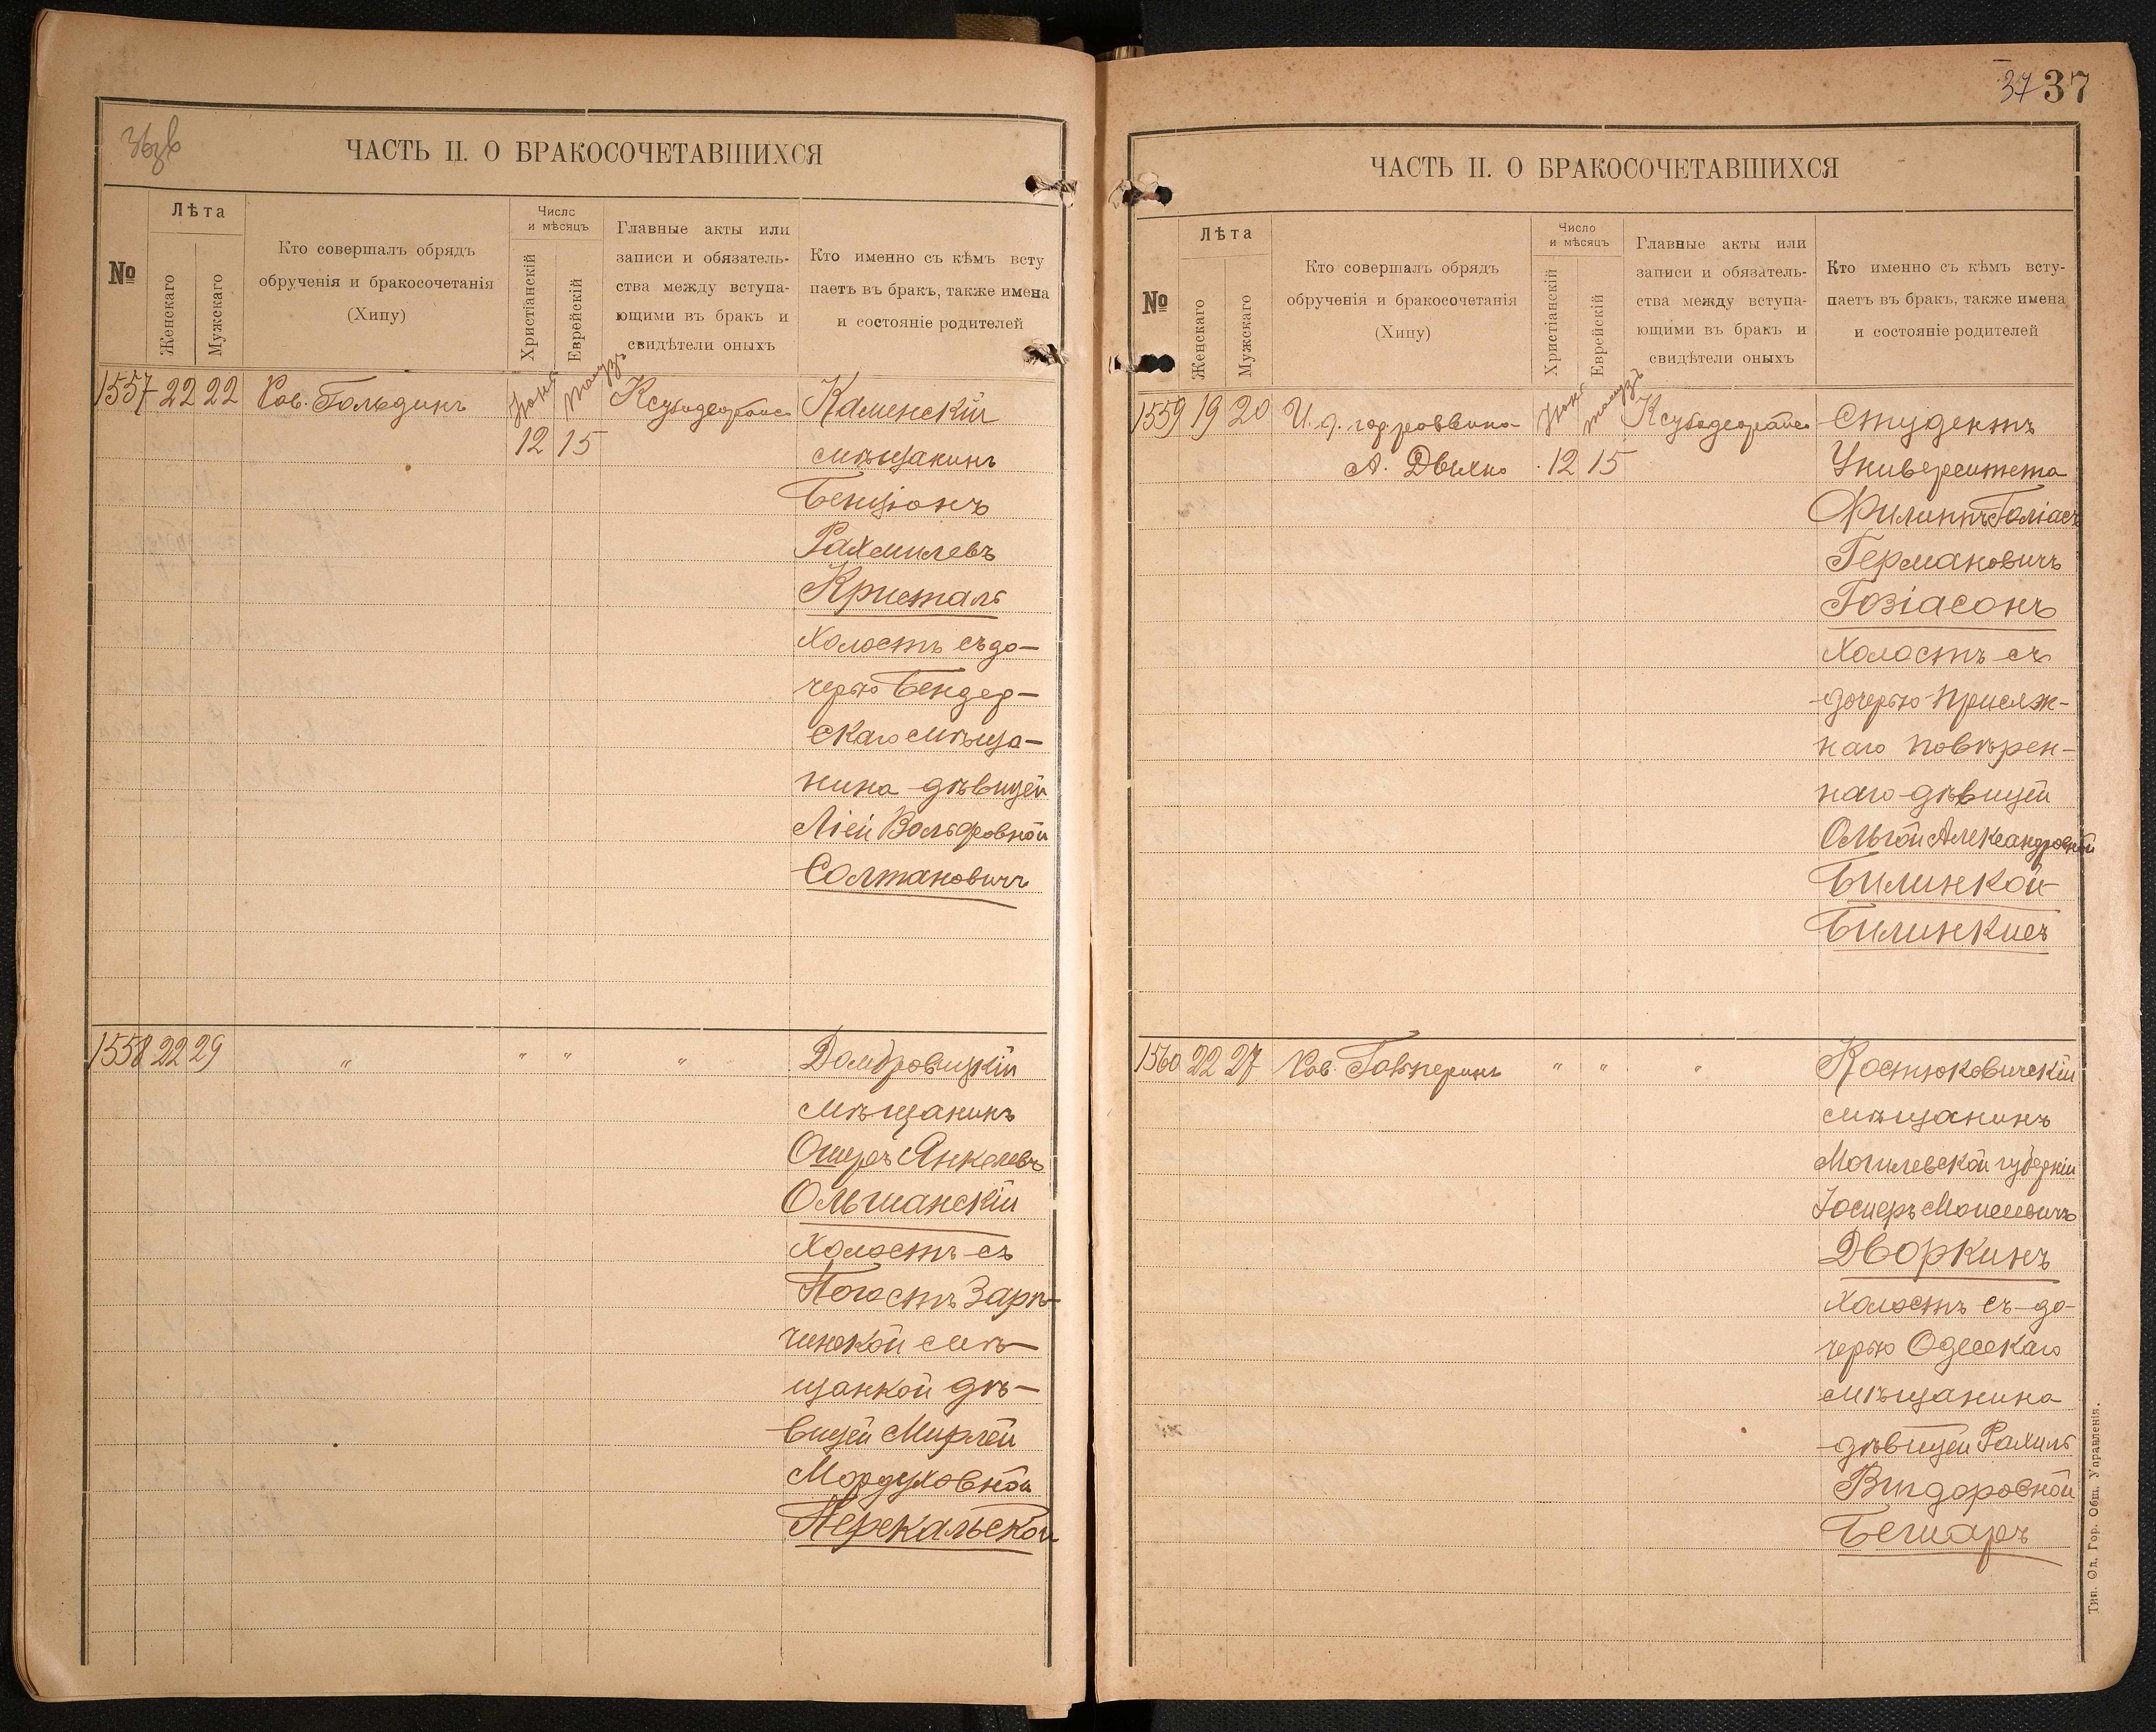 36об
ЧАСТЬ II. О БРАКОСОЧЕТАВШИХСЯ
№
Лѣта
Женскаго
Мужскаго
Кто совершалъ обрядъ
обрученія и бракосочетанія
(Хипу)
Число
и мѣсяцъ
Христіанскій
Еврейскій
Главные акты или
записи и обязатель-
ства между вступа-
ющими въ бракъ и
свидѣтели оныхъ
Кто именно съ кѣмъ всту
паетъ въ бракъ, также имена
и состояніе родителей
1557 22 22 Рав. Гольдинъ
Іюня
12 15
Каменскій
мѣщанинъ
Бенціонъ
Рахмилевъ
Кристалъ
Холостъ съ до-
черью Бендер-
скаго мѣща-
нина дѣвицей
Ліей Вольфовной
Солтановичъ
1558 22 29 " " " "
Домбровицкій
мѣщанинъ
Ошеръ Янкелевъ
Ольшанскій
Холостъ съ
Погостъ Зарѣ-
чинской мѣ-
щанкой дѣ-
вицей Мирлей
Мордуховной
Перекальской
37 37
ЧАСТЬ II. О БРАКОСОЧЕТАВШИХСЯ
№
Лѣта
Женскаго
Мужскаго
Кто совершалъ обрядъ
обрученія и бракосочетанія
(Хипу)
Число
и мѣсяцъ
Христіанскій
Еврейскій
Главные акты или
записи и обязатель-
ства между вступа-
ющими въ бракъ и
свидѣтели оныхъ
Кто именно съ кѣмъ всту-
паетъ въ бракъ, также имена
и состояніе родителей
1559 19 20 И. д. гор. раввина
А. Дыхно
Іюня
12 15
Студентъ
Университета
Филиппъ
Германовичъ
Гозіасонъ
Холостъ съ
дочерью присяж-
наго повѣрен-
наго дѣвицей
Ольгой Александровной
Билинкой
Билинкисъ
1560 22 27 Рав. " " "
Костюковичскій
мѣщанинъ
Могилевской губерніи
Дворкинъ
Холостъ съ до-
черью Одесскаго
мѣщанина
дѣвицей Рахиль
Вигдоровной
Бешаръ
Тип. Од. Гор. Общ. Управленія.